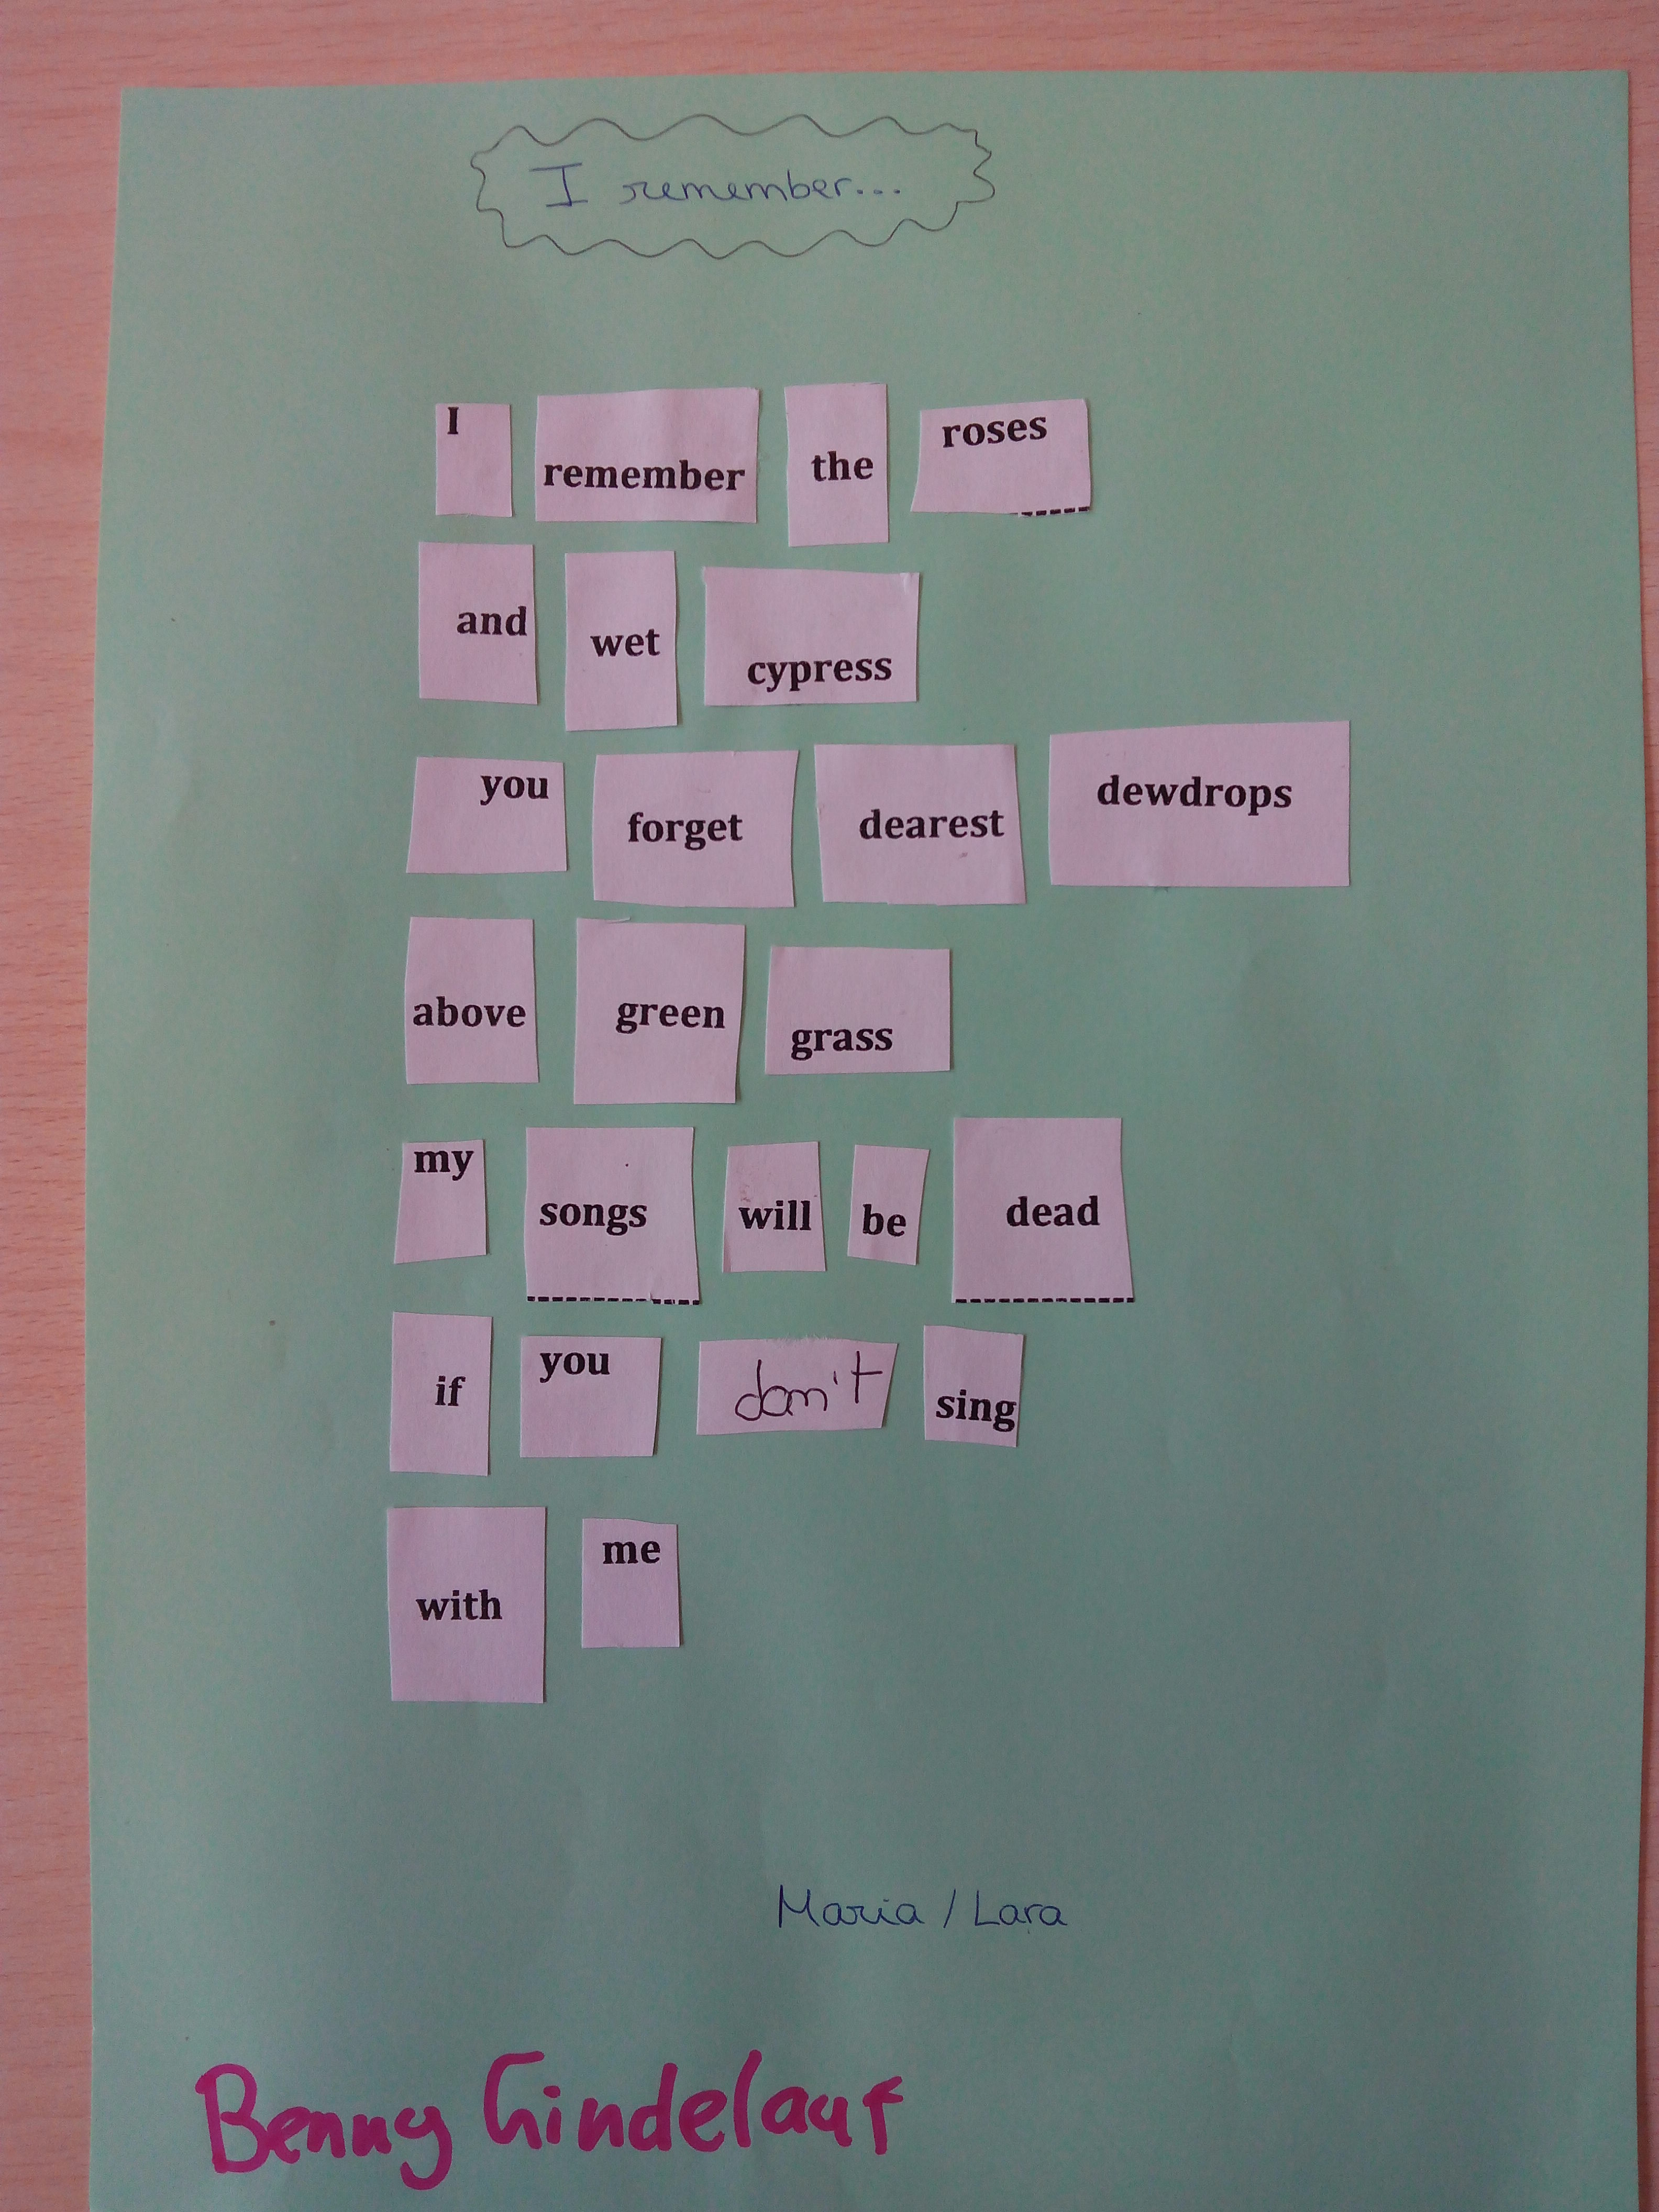 I remember...
I remember the roses
and wet cypress
you forget dearest dewdrops
above green grass
my songs will be dead
if you don't sing
with me
Maria / Lara
Benny Lindelauf